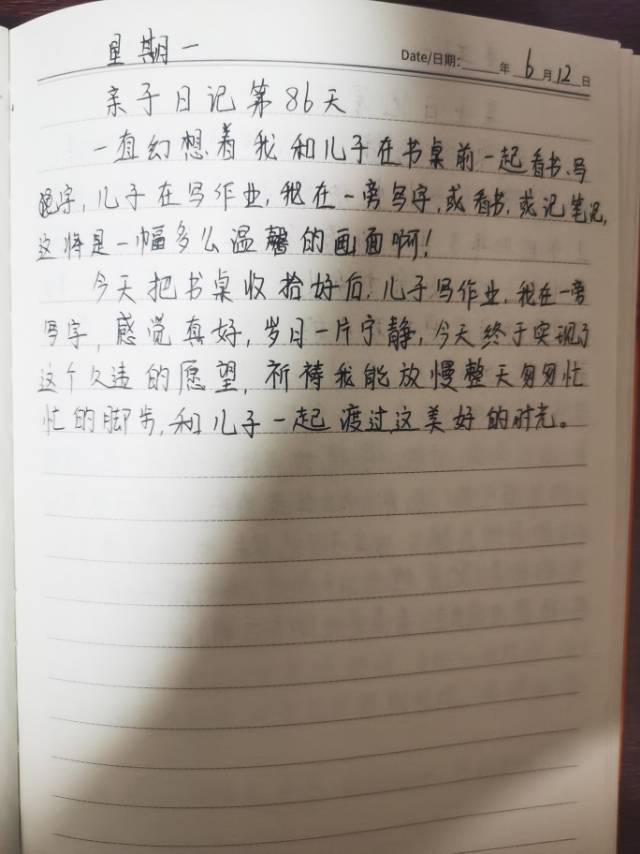 星期一
Date/日期: 年 6月12日
亲子日记第86天
一直幻想着我和儿子在书桌前一起看书、写
字,儿子在写作业,我在一旁写字,或看书,或记笔记,
这将是一幅多么温馨的画面啊!
今天把书桌收拾好后,儿子写作业,我在一旁
写字,感觉真好,岁月一片宁静,今天终于实现了
这个久违的愿望,祈祷我能放慢整天匆匆忙
忙的脚步,和儿子一起渡过这美好的时光。